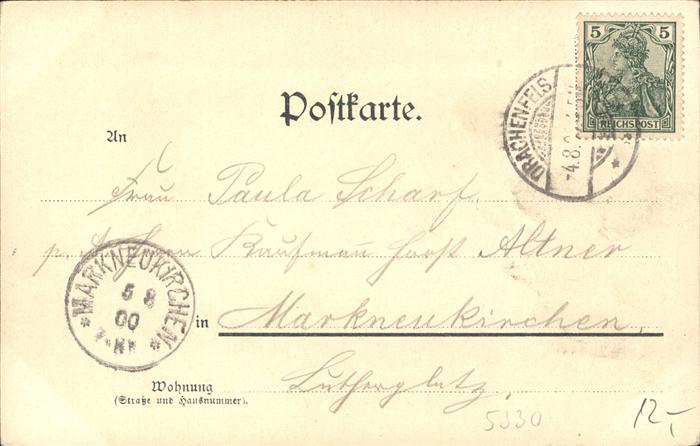 5 5
REICHSPOST
DRACHENFELS
-4.8.
Postkarte.
An
Frau Paula Scharf
p. Kaufmann Horst Altner
in Markneukirchen,
*MARKNEUKIRCHEN*
5 8
00
Wohnung
(Straße und Hausnummer).
Lutherplatz,
5330
12,-